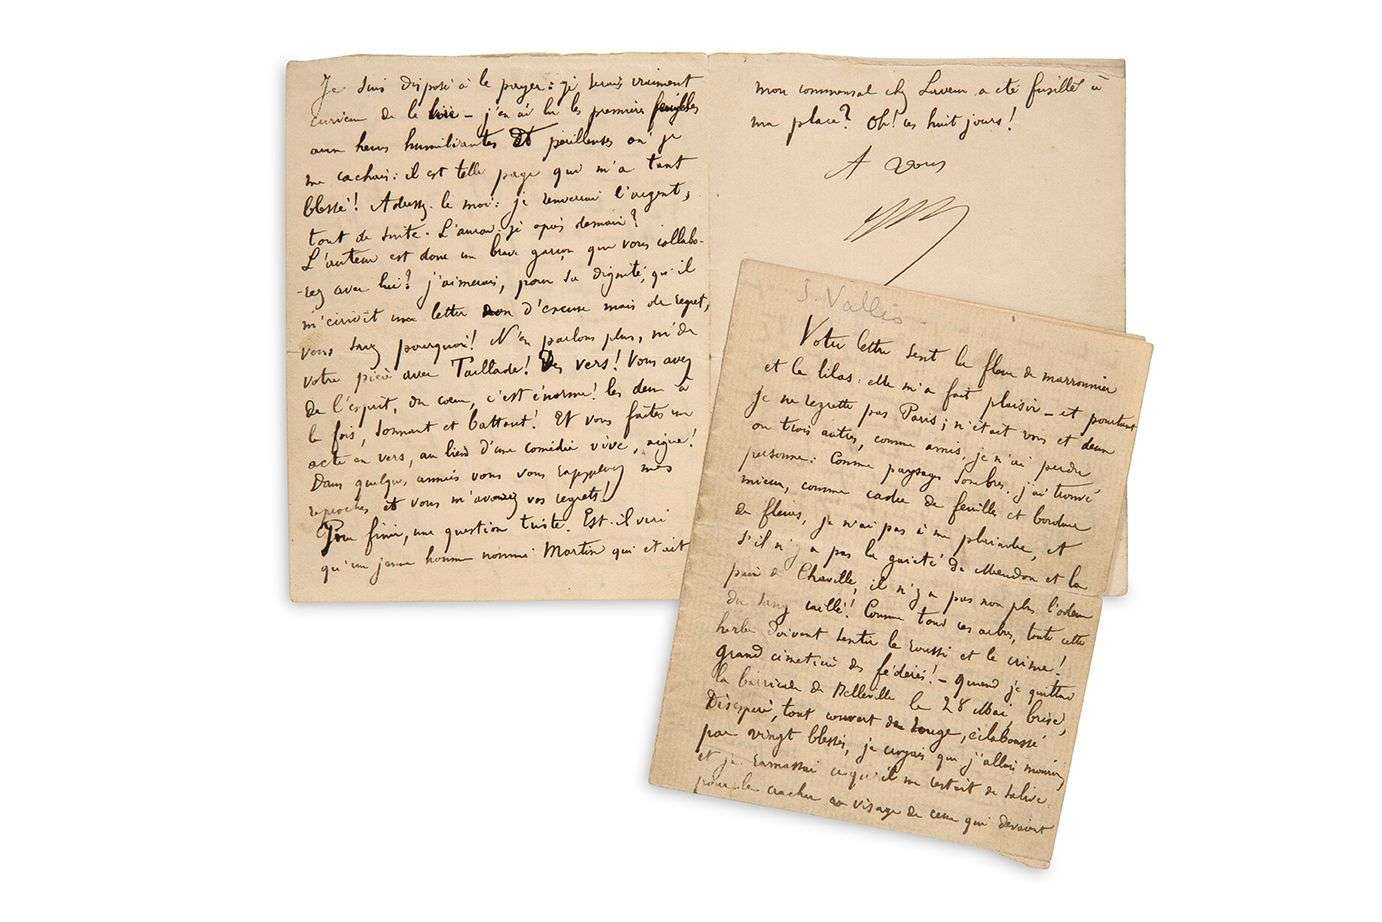 Je suis disposé à le payer : je serais vraiment
curieux de le lire - j'en ai lu les premières feuilles
aux heures humiliantes et périlleuses où je
me cachais : il est telle page qui m'a tant
blessé ! Adressez-le moi : je renverrai l'argent,
tout de suite. L'aurai-je après demain ?
L'auteur est donc un brave garçon que vous collabo-
-rez avec lui ? j'aimerais, pour sa dignité, qu'il
m'écrivît une lettre non d'excuse mais de regret,
vous savez pourquoi ! N'en parlons plus,
votre pièce avec Taillade ! Des vers ! Vous avez
de l'esprit, du cœur, c'est énorme ! les deux à
la fois, sonnant et battant ! Et vous faites un
acte en vers, au lieu d'une comédie vive, aigue !
Dans quelques années vous vous rappelerez mes
reproches et vous m'avouerez vos regrets !
Pour finir, une question triste. Est-il vrai
qu'un jeune homme nommé Martin qui était
mon commensal chez Laveur a été fusillé à
ma place ? Oh ! ces huit jours !
A vous
J. Vallès
Votre lettre sent la fleur de marronnier
et le lilas : elle m'a fait plaisir - et pourtant
je ne regrette pas Paris ; n'était vous et deux
ou trois autres, comme amis, je n'ai perdu
personne : Comme paysages sombres, j'ai trouvé
mieux, comme cadre de feuille et bordure
de fleurs, je n'ai pas à me plaindre, et
s'il n'y a pas la gaieté de Meudon et la
paix de Chaville, il n'y a pas non plus l'odeur
du sang caillé ! Comme tous ces arbres, toute cette
herbe doivent sentir le roussi et le crime !
grand cimetière des fédérés ! - quand je quittai
la barricade de Belleville le 28 Mai, brisé,
Désespéré, tout couvert de rouge, éclaboussé
par vingt blessés, je croyais que j'allais mourir,
et je ramassai ce qu'il me restait de salive
pour le cracher au visage de ceux qui devaient